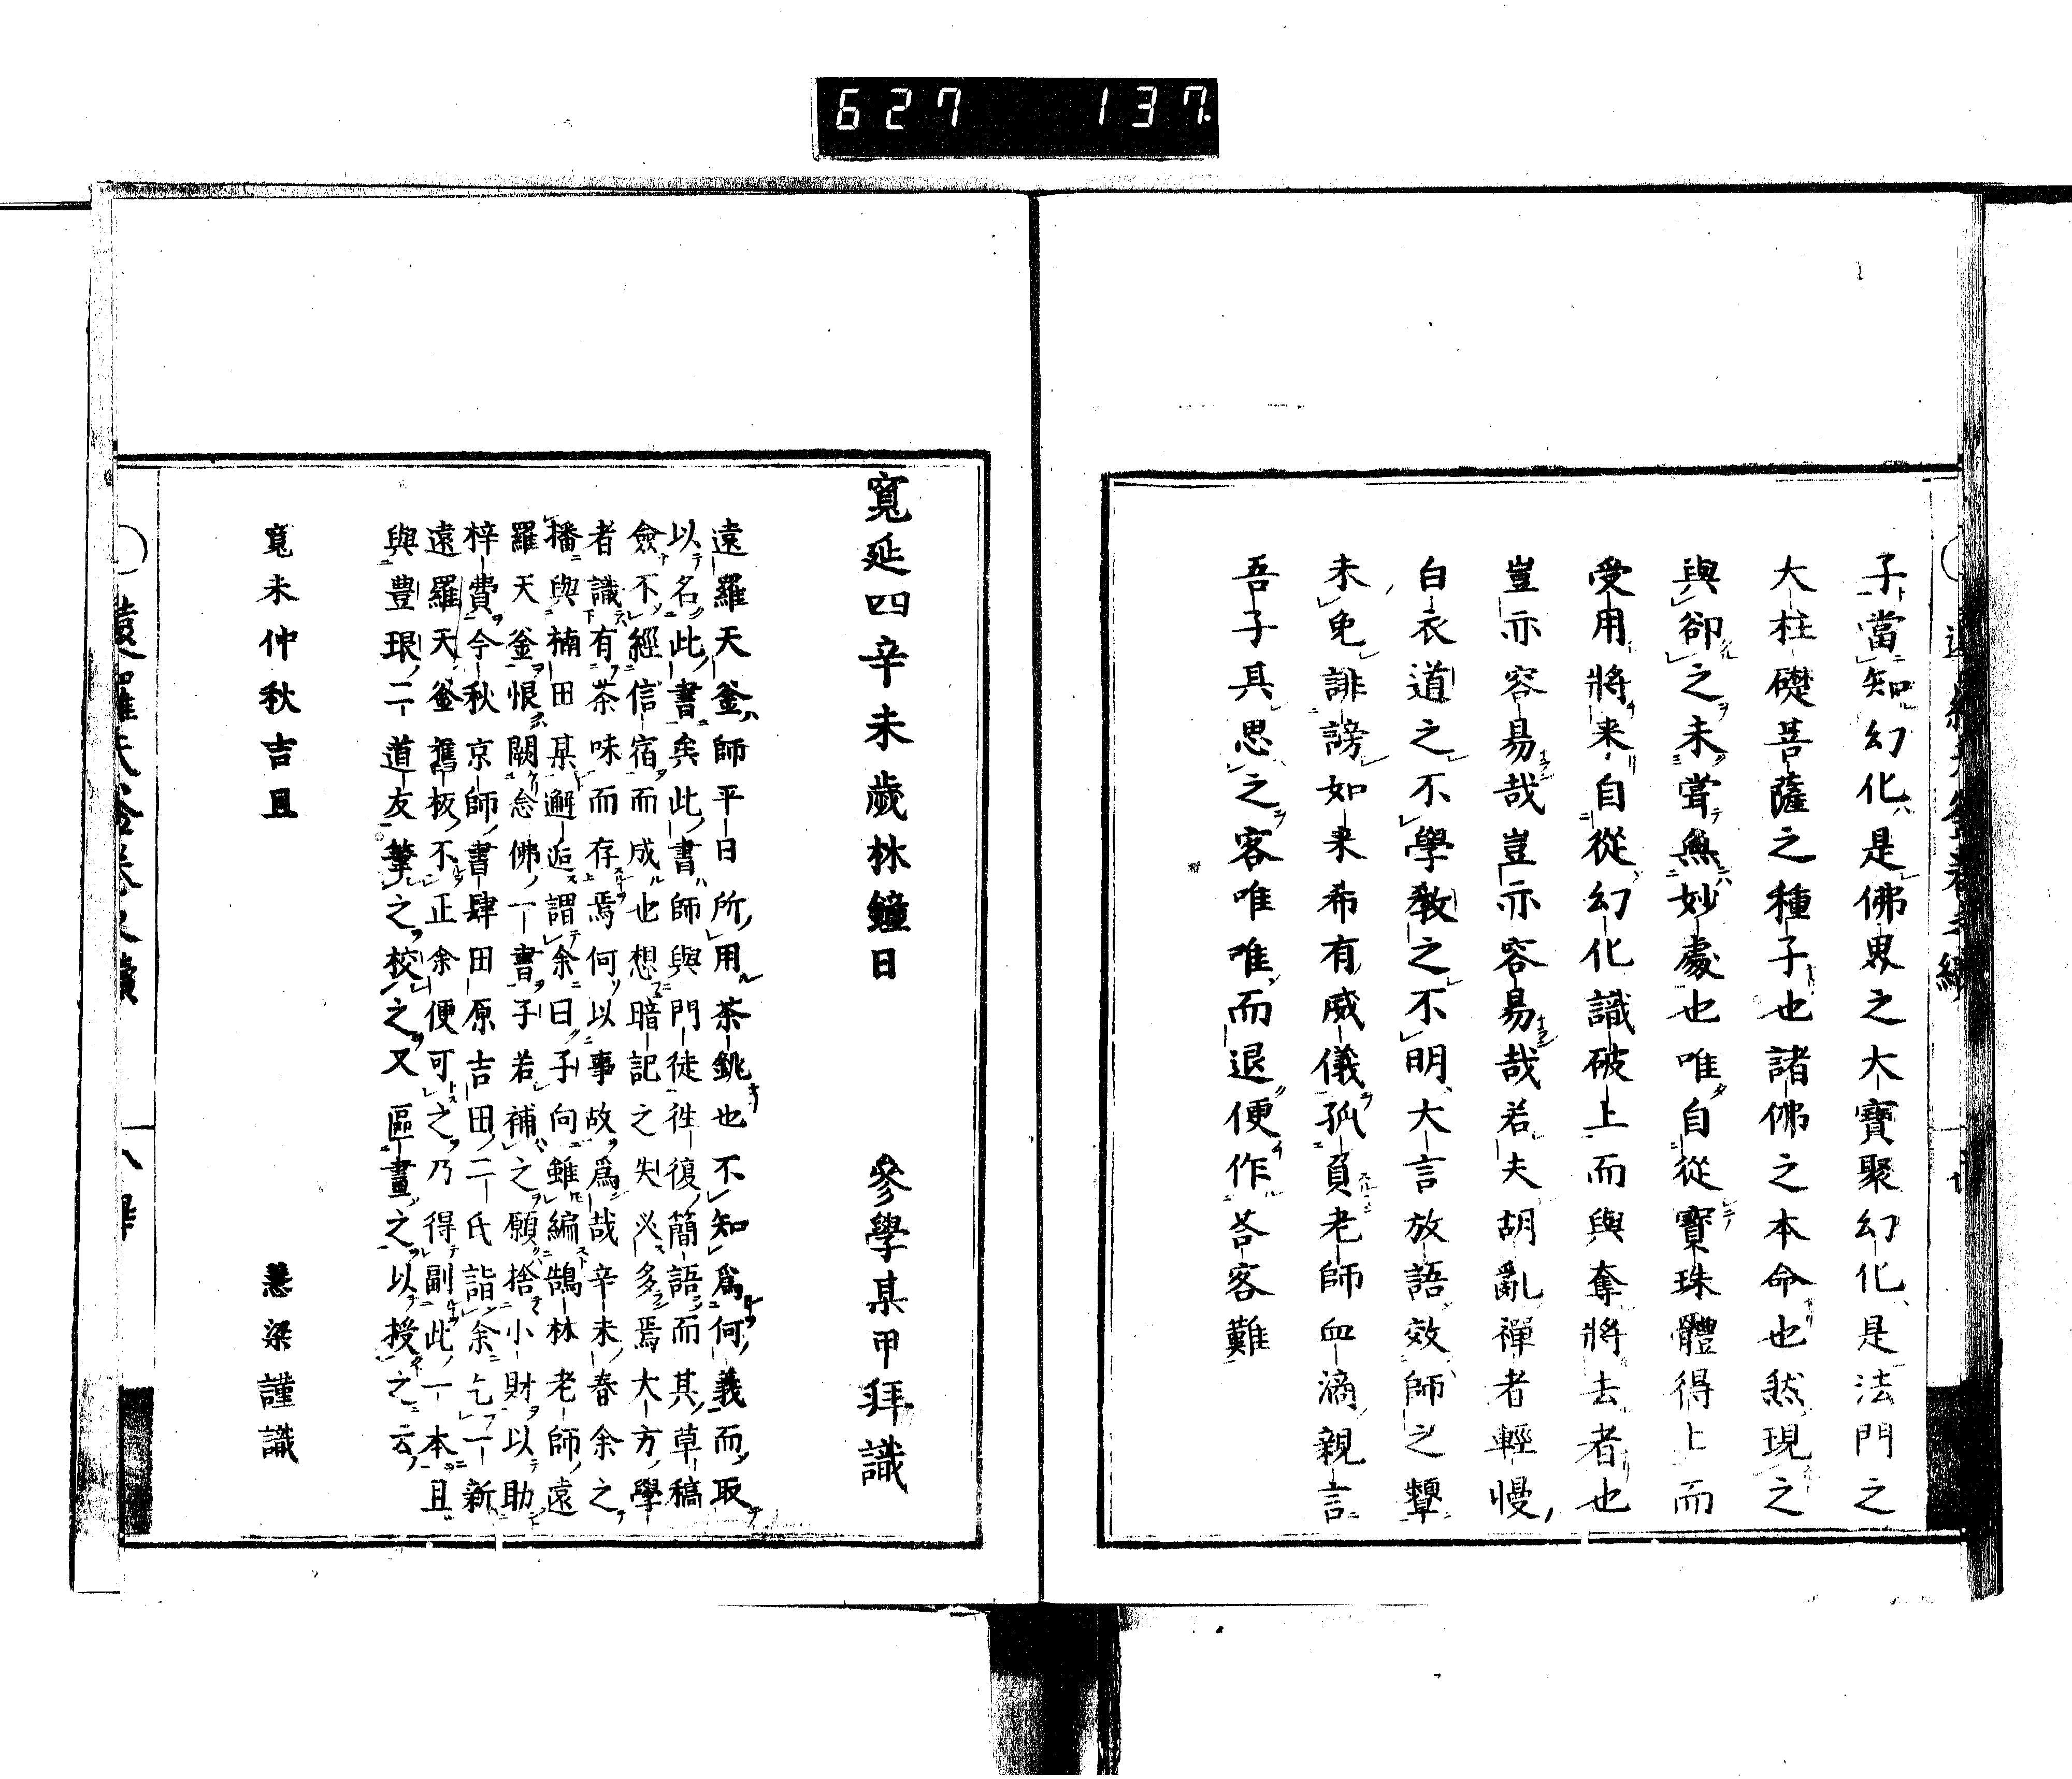 627 137
子當知幻化是佛界之大寶聚幻化是法門之
大柱礎菩薩之種子也諸佛之本命也然現之
與卻之未嘗無妙處也唯自從寶珠體得上而
受用將来自從幻化識破上而與奪將去者也
豈亦容易哉豈亦容易哉若夫胡亂禪者輕慢
白衣道之不學教之不明大言放語效師之顰
未免誹謗如来希有威儀孤負老師血滴親言
吾子其思之客唯唯而退便作荅客難
寬延四辛未歲林鐘日 參學某甲拜識
遠羅天釜師平日所用茶銚也不知爲何義而取
以名此書矣此書師與門徒徃復簡語而其草稿
僉不經信宿而成也想暗記之失必多焉大方學
者識有茶味而存焉何以事故爲哉辛未春余之
播與楠田某邂逅謂余曰子向雖編鵠林老師遠
羅天釜恨闕念佛一書子若補之願捨小財以助
梓費今秋京師書肆田原吉田二氏詣余乞一新
遠羅天釜舊板不正余便可之乃得副此一本且
與豊珉二道友筆之校之又區畫之以授之云
寬未仲秋吉旦 慧梁謹識